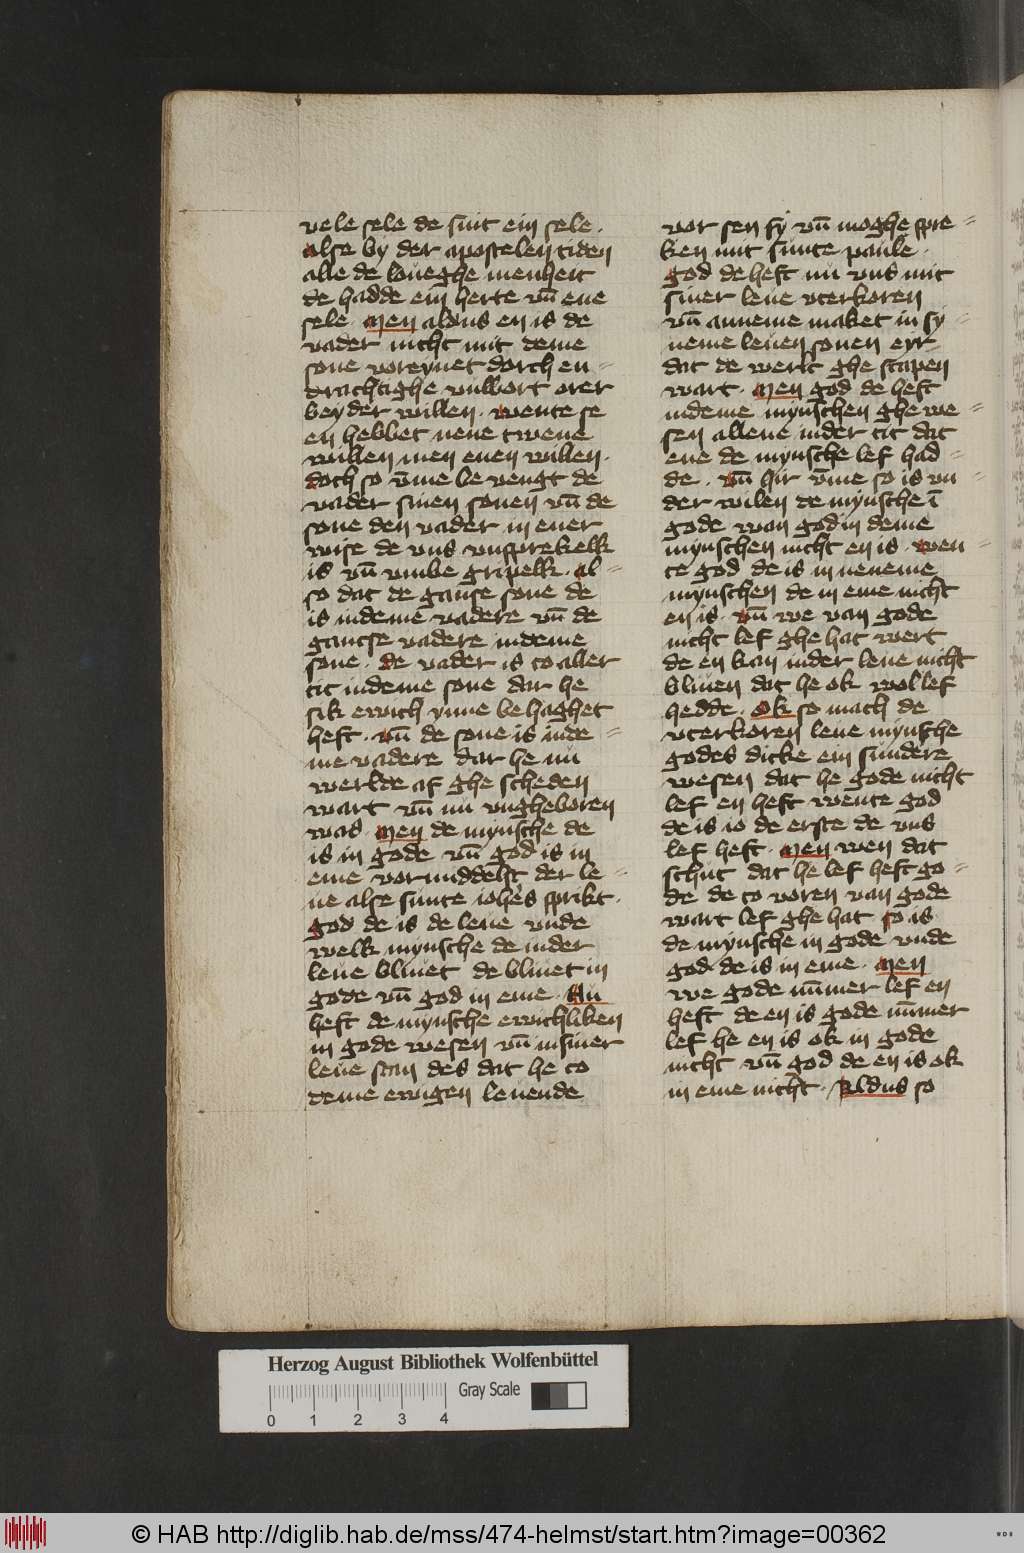 vele sele de sint ein sele ·
alse by der apostelen tiden
alle de loueghe menheit
de hadde ein herte vn̄ ene
sele · Men aldus en is de
vader nicht mit deme
sone voreynet dorch en=
drachtighe vulbort orer
beyder willen · wente se
en hebbet nene twene
willen men enen willen ·
doch so vm̄e be vengt de
vader sinen sonen vn̄ de
sone den vader in ener
wise de vns vnsprekelk
is vn̄ vmbe gripelk · al=
so dat de ganse sone de
is indeme vadere vn̄ de
gantse vadere indeme
sone · de vader is to aller
tit indeme sone dar he
sik ewich ynne be haghet
heft · vn̄ de sone is inde=
me vadere dar he nu
werlde af ghe scheden
wart vn̄ nu vngheboren
was · Men de mynsche de
is in gode vn̄ god is in
eme vormiddelst der le=
ue alse sunte ioh̄es sprikt ·
god de is de leue vnde
welk mynsche de inder
leue bliuet de bliuet in
gode vn̄ god in eme · Nu
heft de mynsche ewichliken
in gode wesen vn̄ in siner
leue stan des dat he to
deme ewigen leuende
vor sen sy vn̄ moghe spre=
ken mit sunte paule ·
god de heft nu vns mit
siner leue vterkoren
vn̄ anneme maket in sy=
neme leuen sonen eyr
dat de werlt ghe scapen
wart · Men god de heft
indeme mynschen ghe we=
sen allene inder tit dat
ene de mynsche lef had=
de · vn̄ hir vm̄e so is vn=
der wilen de mynsche ī
gode wan god in deme
mynschen nicht en is · wen=
te god de is in neneme
mynschen de in eme nicht
en is · vn̄ we van gode
nicht lef ghe hat wert
de en kan inder leue nicht
bliuen dat he ok wol lef
hedde · Ok so mach de
vterkoren leue mynsche
godes dicke ein sundere
wesen dat he gode nicht
lef en heft wente god
de is io de erste de vns
lef heft · Men wen dat
schut dat he lef heft go=
de de to voren van gode
wart lef ghe hat so is
de mynsche in gode vnde
god de is in eme · Men
we gode nūmer lef en
heft de en is gode nūmer
lef he en is ok in gode
nicht vn̄ god de en is ok
in eme nicht · Aldus so
Herzog August Bibliothek Wolfenbüttel
Gray Scale
0 1 2 3 4
© HAB http://diglib.hab.de/mss/474-helmst/start.htm?image=00362